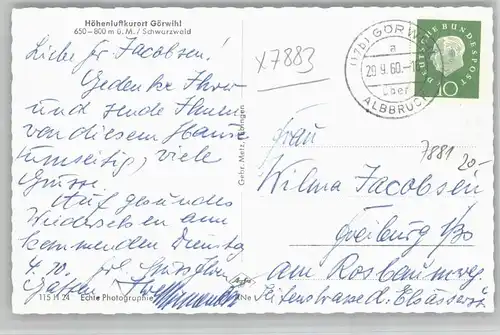 Höhenluftkurort Görwihl
650–800 m ü. M. / Schwarzwald
Liebe Fr. Jacobsen!
Gedenke Ihrer
und sende Ihnen
von diesem Hause
umseitig, viele
Grüsse.
Auf gesundes
Wiedersehen am
kommenden Dienstag
4. 10.
115 H 24 Echte Photographie
Gebr. Metz, Tübingen
x7883
(17b) GÖRWIHL
a
29.9.60.-1
über
ALBBRUCK
DEUTSCHE BUNDESPOST
10
7881 20-
Frau
Wilma Jacobsen
Freiburg i/Br
am Rosbaumweg.
Seitenstrasse d. Elsässerstr